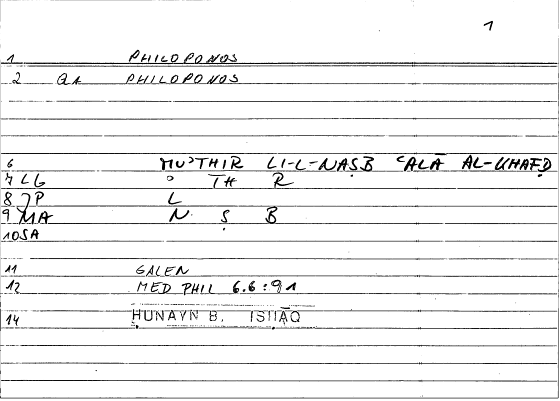 1
1 PHILOPONOS
2 QA PHILOPONOS
6 MUʾTHIR LI-L-NAṢB ʿALĀ AL-KHAFḌ
7 LG ʾ TH R
8 JP L
9 MA N Ṣ B
10 SA
11 GALEN
12 MED PHIL 6.6:91
14 ḤUNAYN B. ISḤĀQ